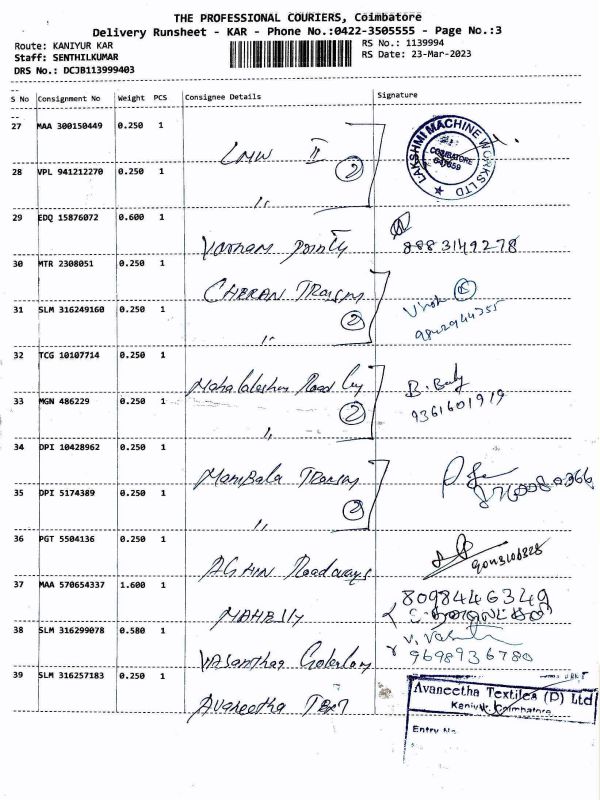 THE PROFESSIONAL COURIERS, Coimbatore
Delivery Runsheet - KAR - Phone No.:0422-3505555 - Page No.:3
Route: KANIYUR KAR
RS No.: 1139994
Staff: SENTHILKUMAR
RS Date: 23-Mar-2023
DRS No.: DCJB113999403
S No Consignment No Weight PCS Consignee Details Signature
27 MAA 300150449 0.250 1
LMW II
LAKSHMI MACHINE WORKS LTD
COIMBATORE
28 VPL 941212270 0.250 1
2
"
29 EDQ 15876072 0.600 1
8883149278
30 MTR 2308051 0.250 1
CHERAN
31 SLM 316249160 0.250 1
2
"
32 TCG 10107714 0.250 1
Road
33 MGN 486229 0.250 1
2
9361601919
"
34 DPI 10428962 0.250 1
35 DPI 5174389 0.250 1
2
"
36 PGT 5504136 0.250 1
Roadways
37 MAA 570654337 1.600 1
8098446349
38 SLM 316299078 0.580 1
9698936780
39 SLM 316257183 0.250 1
Avaneetha
Avaneetha Textiles (P) Ltd
Kaniyur, Coimbatore
Entry No.